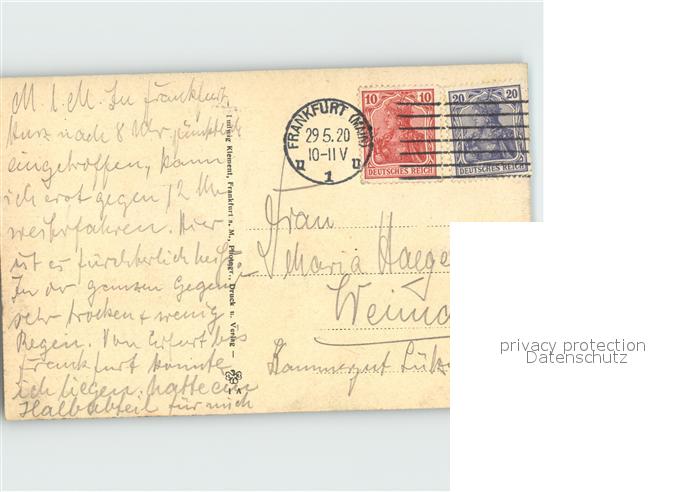 M. l. M. In Frankfurt
kurz nach 8 Uhr pünktlich
eingetroffen, kann
ich erst gegen 12 Uhr
weiterfahren. Hier
ist es fürchterlich heiß.
In der ganzen Gegend
sehr trocken & wenig
Regen. Von Erfurt bis
Frankfurt konnte
ich liegen, hatte ein
Halbabteil für mich
Ludwig Klement, Frankfurt a. M., Photogr., Druck u. Verlag
FRANKFURT (MAIN)
29.5.20
10-11 V
1
10 10
DEUTSCHES REICH
20 20
DEUTSCHES REICH
Frau
Maria Haege
Weima
Kammergut Lütz
privacy protection
Datenschutz